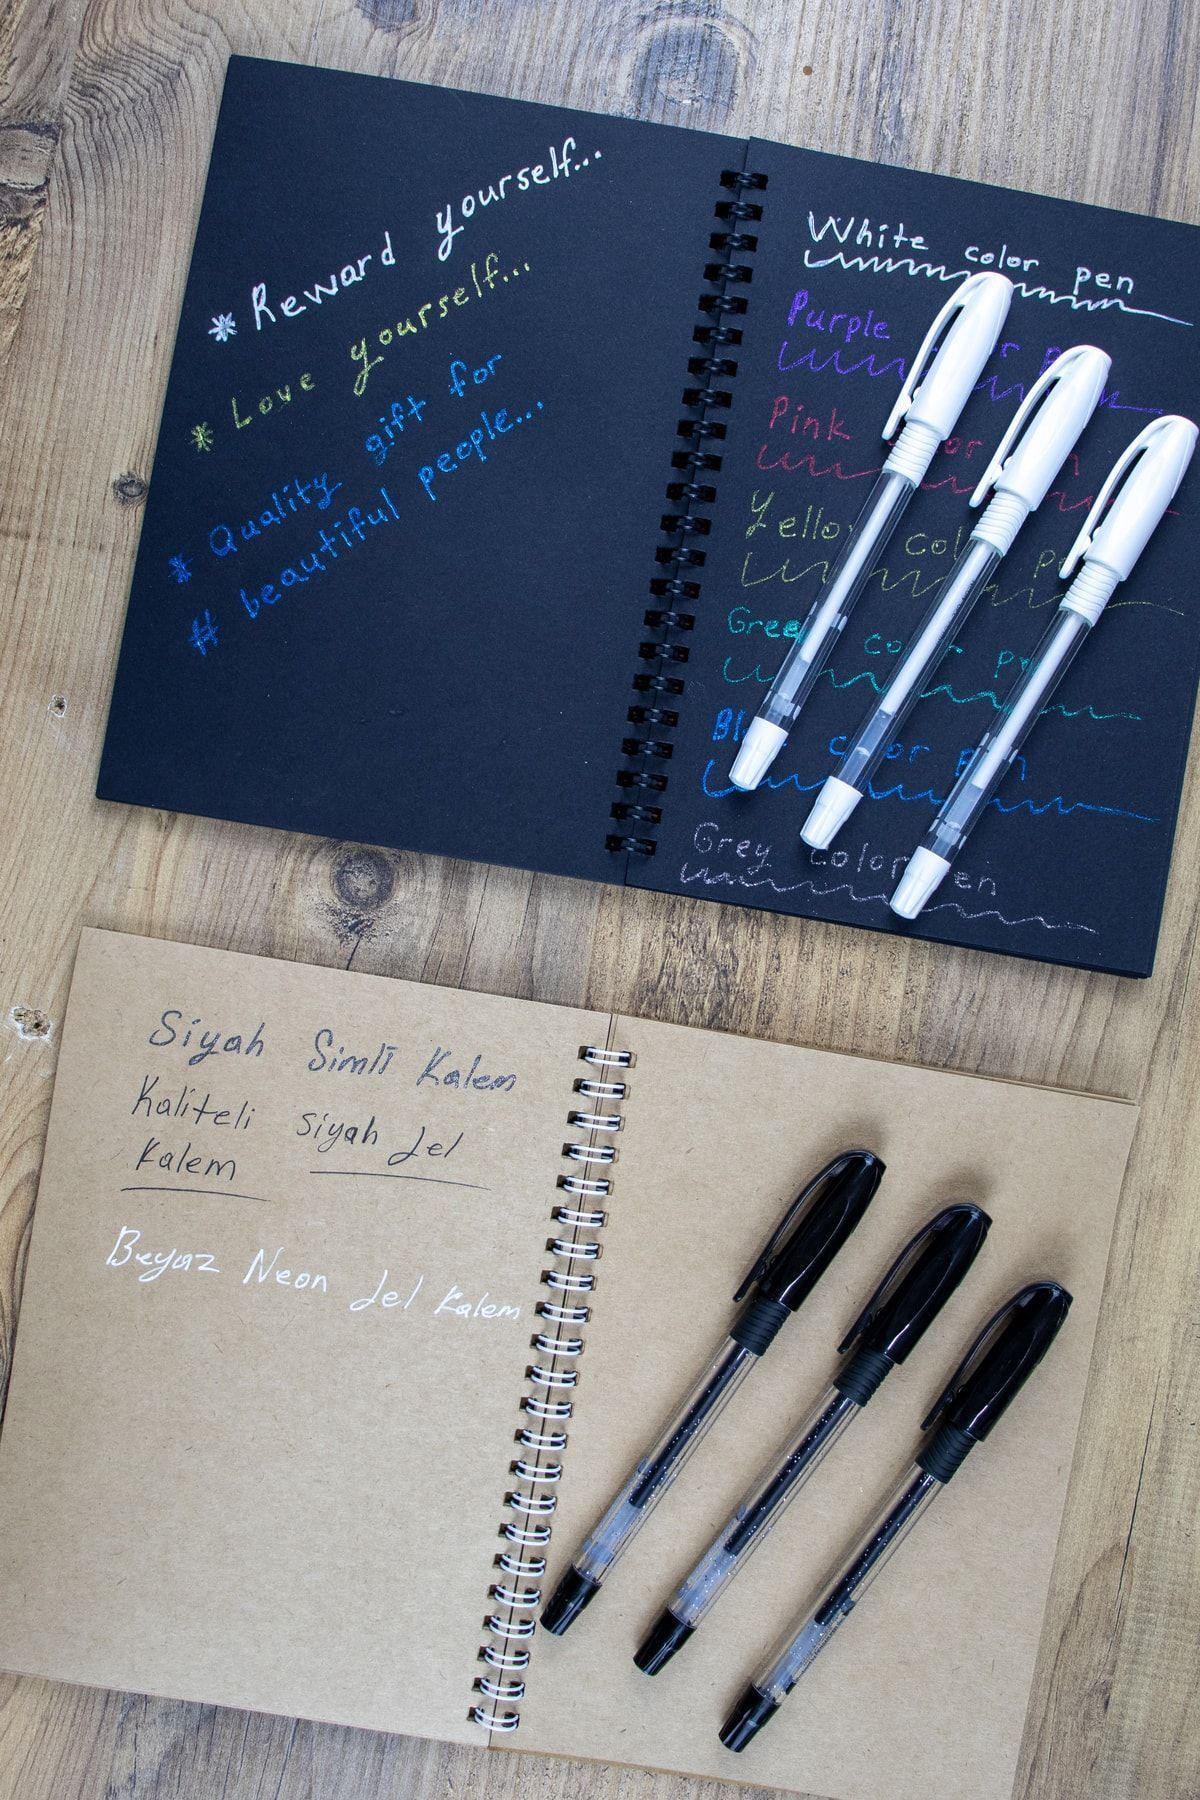 * Reward yourself...
* Love yourself...
* Quality gift for
# beautiful people...
White color pen
Purple
Pink
color
Green
Grey color
Siyah Simli Kalem
Kaliteli siyah Jel
Kalem
Beyaz Neon Jel Kalem